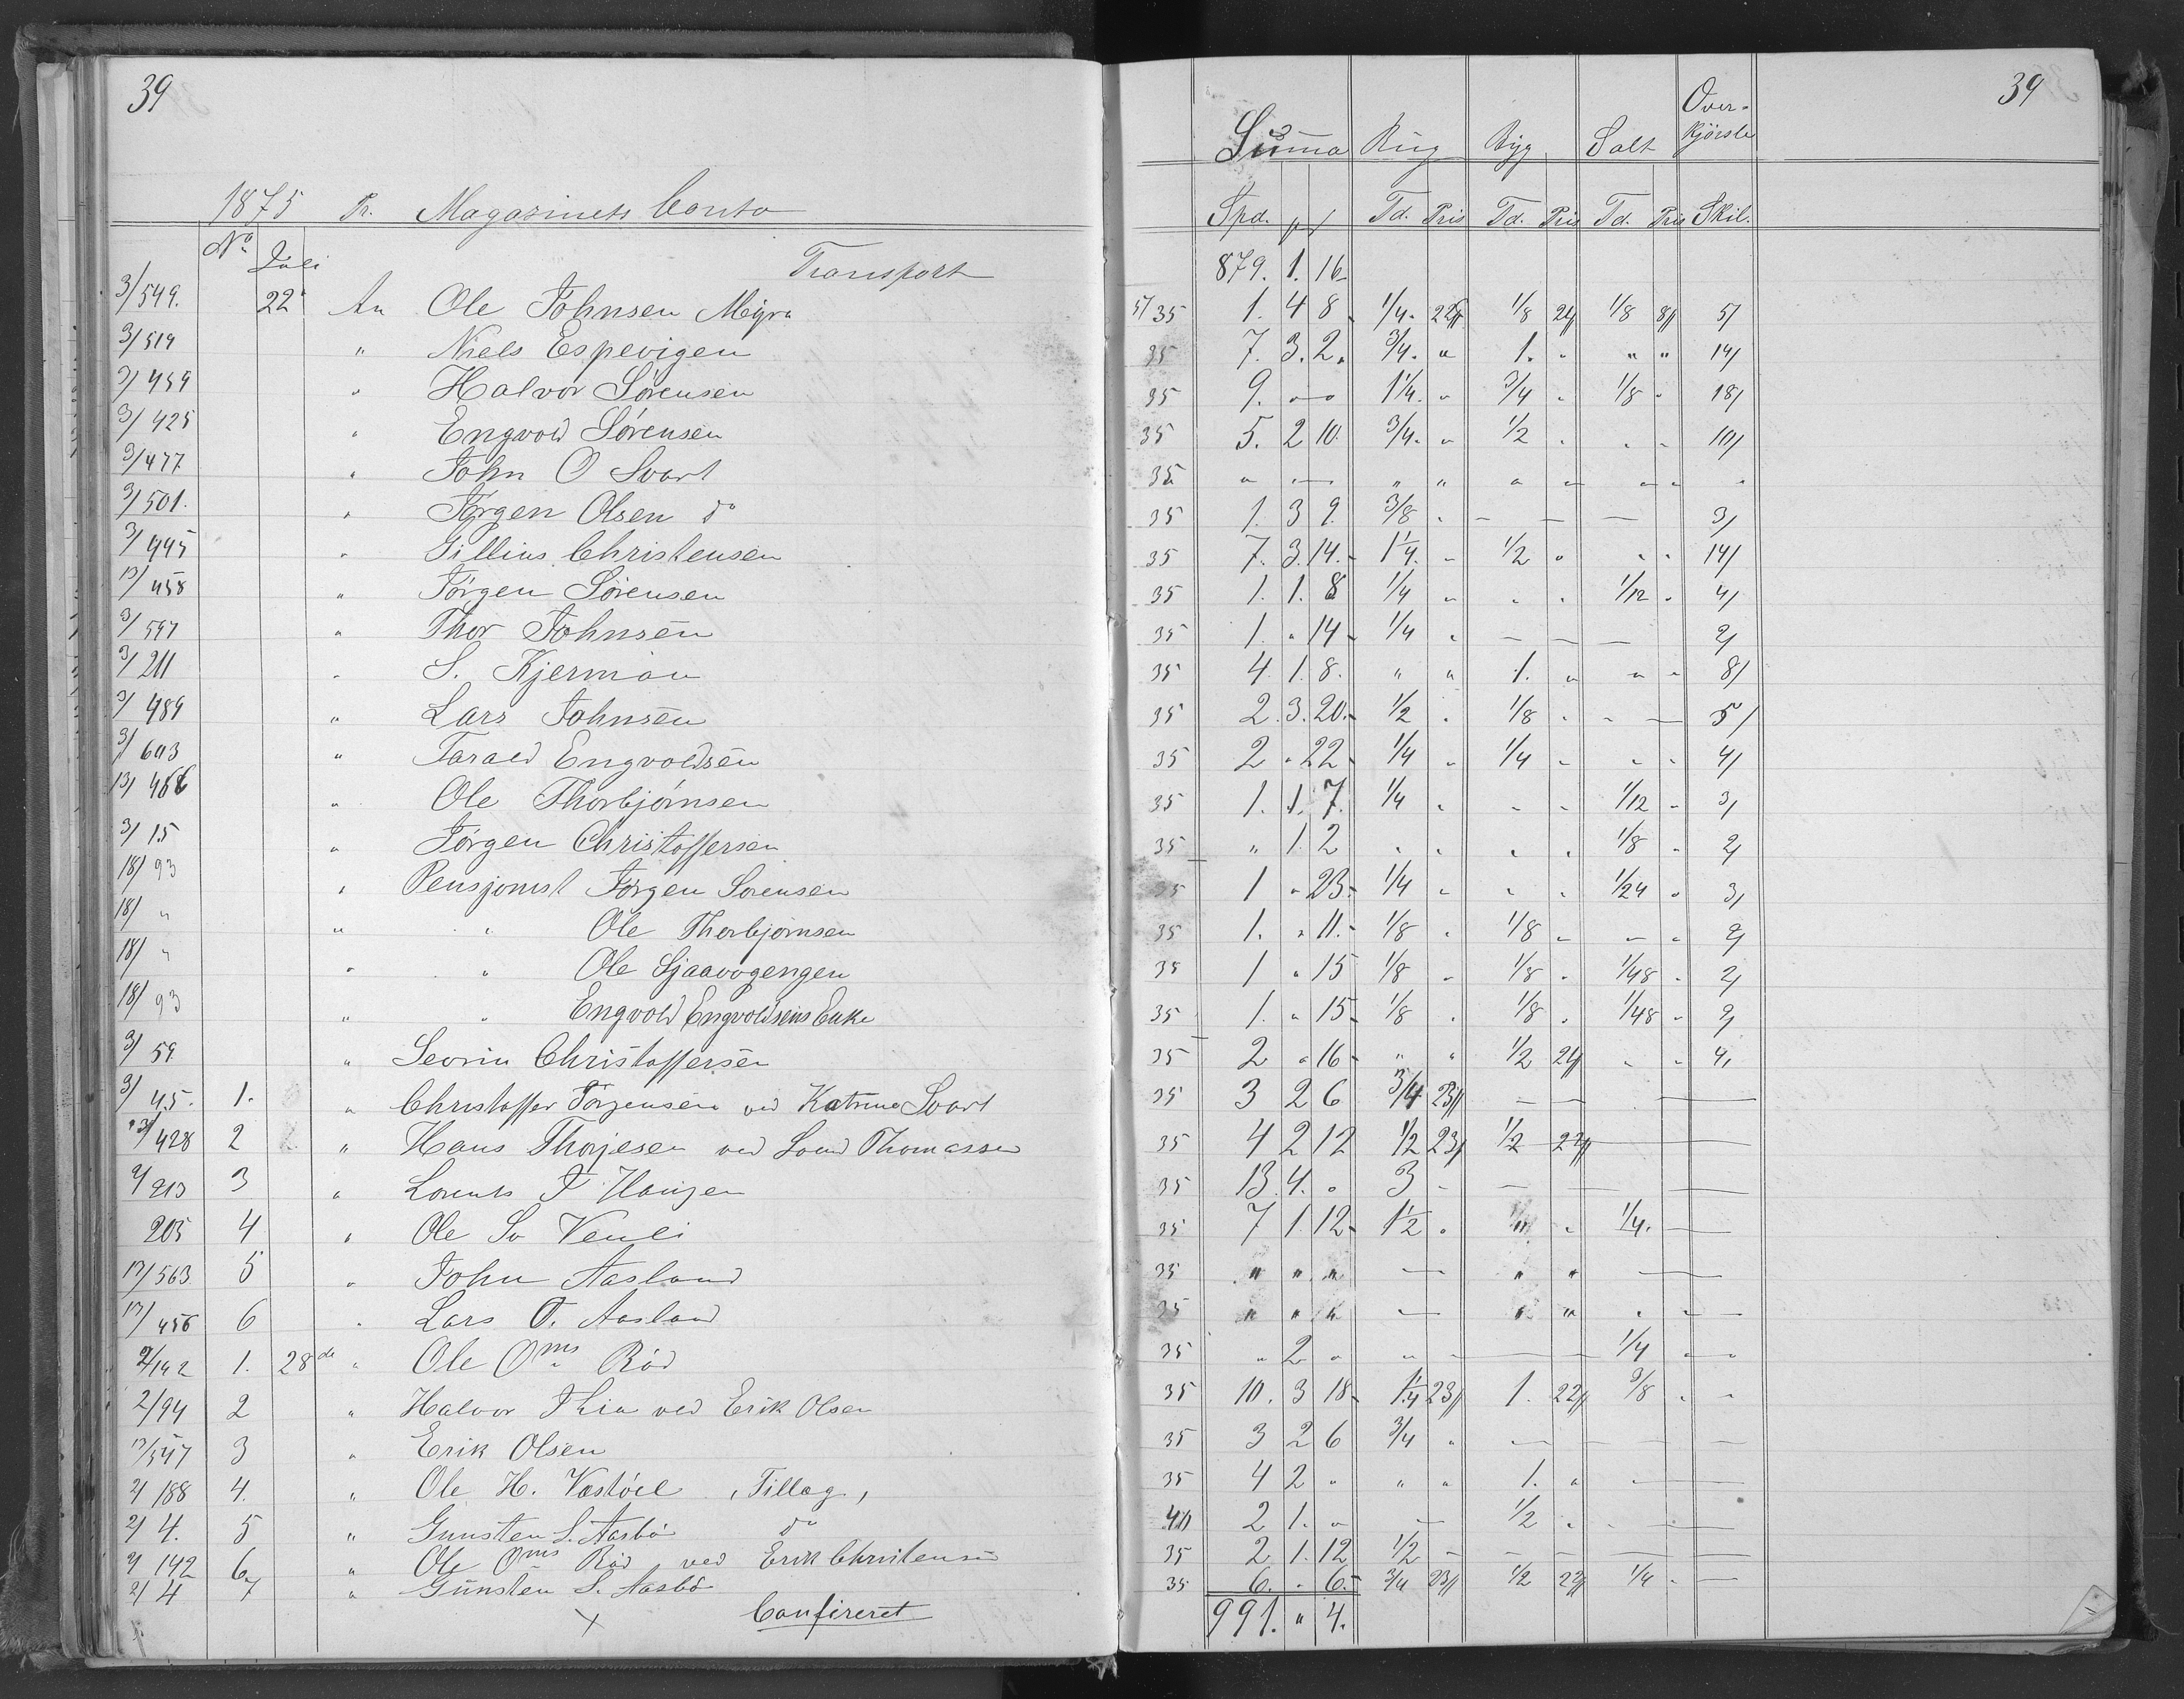 39
1875 Pr. Magazinets Conto
No. Juli Transport
3/549. 22 An Ole Johnsen Myra
3/519 " Niels Espevigen
3/459 " Halvor Sörensen
3/425 " Engvold Sörensen
3/477 " John O Svart
3/501. " Jörgen Olsen do
3/445 " Gillius Christensen
13/458 " Jörgen Sörensen
3/597 " Thor Johnsen
3/211 " S. Kjerman
3/489 " Lars Johnsen
3/643 " Tarald Engvoldsen
13/ " Ole Thorbjörnsen
3/15 " Jörgen Christoffersen
18/93 " Pensjonist Jörgen Sorensen
18/ " " " Ole Thorbjörnsen
18/ " " " Ole
18/93 " " Engvold Engvoldsens Enke
3/59 " Sevrin Christoffersen
3/45. 1. " Christoffer Jörgensen ved Katrine Svart
13/428 2 " Hans Thorjesen ved Svend Thomassen
2/213 3 " Lorents T Haugen
205 4 " Ole Sv Venli
13/563 5 " John Aasland
13/456 6 " Lars O. Aasland
2/142 1. 28de " Ole Oms Röd
2/94 2 " Halvor Thia ved Erik Olsen
13/547 3 " Erik Olsen
2/188 4. " Ole H. Vastöel , Tillæg,
2/4. 5 " Gunsten S. Aasbö do
2/142 6 " Ole Oms Röd ved Erik Christensen
2/4 7 " Gunsten S. Aasbö
Confireret
39
Summa Rug Byg Salt Over-
kjörsle
Spd. Td. Pris Td. Pris Td. Pris Skil.
879. 1. 16
51 35 1. 4 8 1/4. 22 1/8 21 1/8 8 5/
35 7. 3. 2. 3/4. " 1. " " " 14/
35 9. " " 1 1/4. " 3/4 " 1/8 " 18/
35 5. 2 10. 3/4. " 1/2 " " " 10/
35 " " " " " " " " "
35 1. 3 9. 3/8 " — — — 3/
35 7. 3. 14. 1 1/4. " 1/2 " " " 14/
35 1. 1. 8 1/4 " " " 1/12 " 4/
35 1. " 14 1/4 " — — — 2/
35 4. 1. 8. " " 1. " " " 8/
35 2. 3. 20. 1/2 " 1/8 " " — 5/
35 2 " 22 1/4 " 1/4 " " " 4/
35 1. 1. 7. 1/4 " " " 1/12 " 3/
35 " 1. 2 " " " " 1/8 " 2/
35 1 " 23. 1/4 " " " 1/24 " 3/
35 1. " 11. 1/8 " 1/8 " " " 2/
35 1 " 15 1/8 " 1/8 " 1/48 " 2/
35 1. " 15 1/8 " 1/8 " 1/48 " 2/
35 2 " 16 " " 1/2 21 " " 4,
35 3 2 6 3/4 23 — — —
35 4 2 12 1/2 23 1/2 22 —
35 13. 4. " 3 " — — —
35 7 1. 12 1 1/2 " " " 1/4. —
35 " " " — " " —
35 " " " — " " " —
35 " 2 " " " — — 1/4 " "
35 10. 3 18 1 1/4 23 1. 22 3/8 " "
35 3 2 6 3/4 " — — — —
35 4 2 " " " 1. " —
40 2 1. " — 1/2 " — —
35 2 1. 12 1/2 — — — — —
35 6. " 6. 3/4 23 1/2 22 1/4 " —
991. " 4.